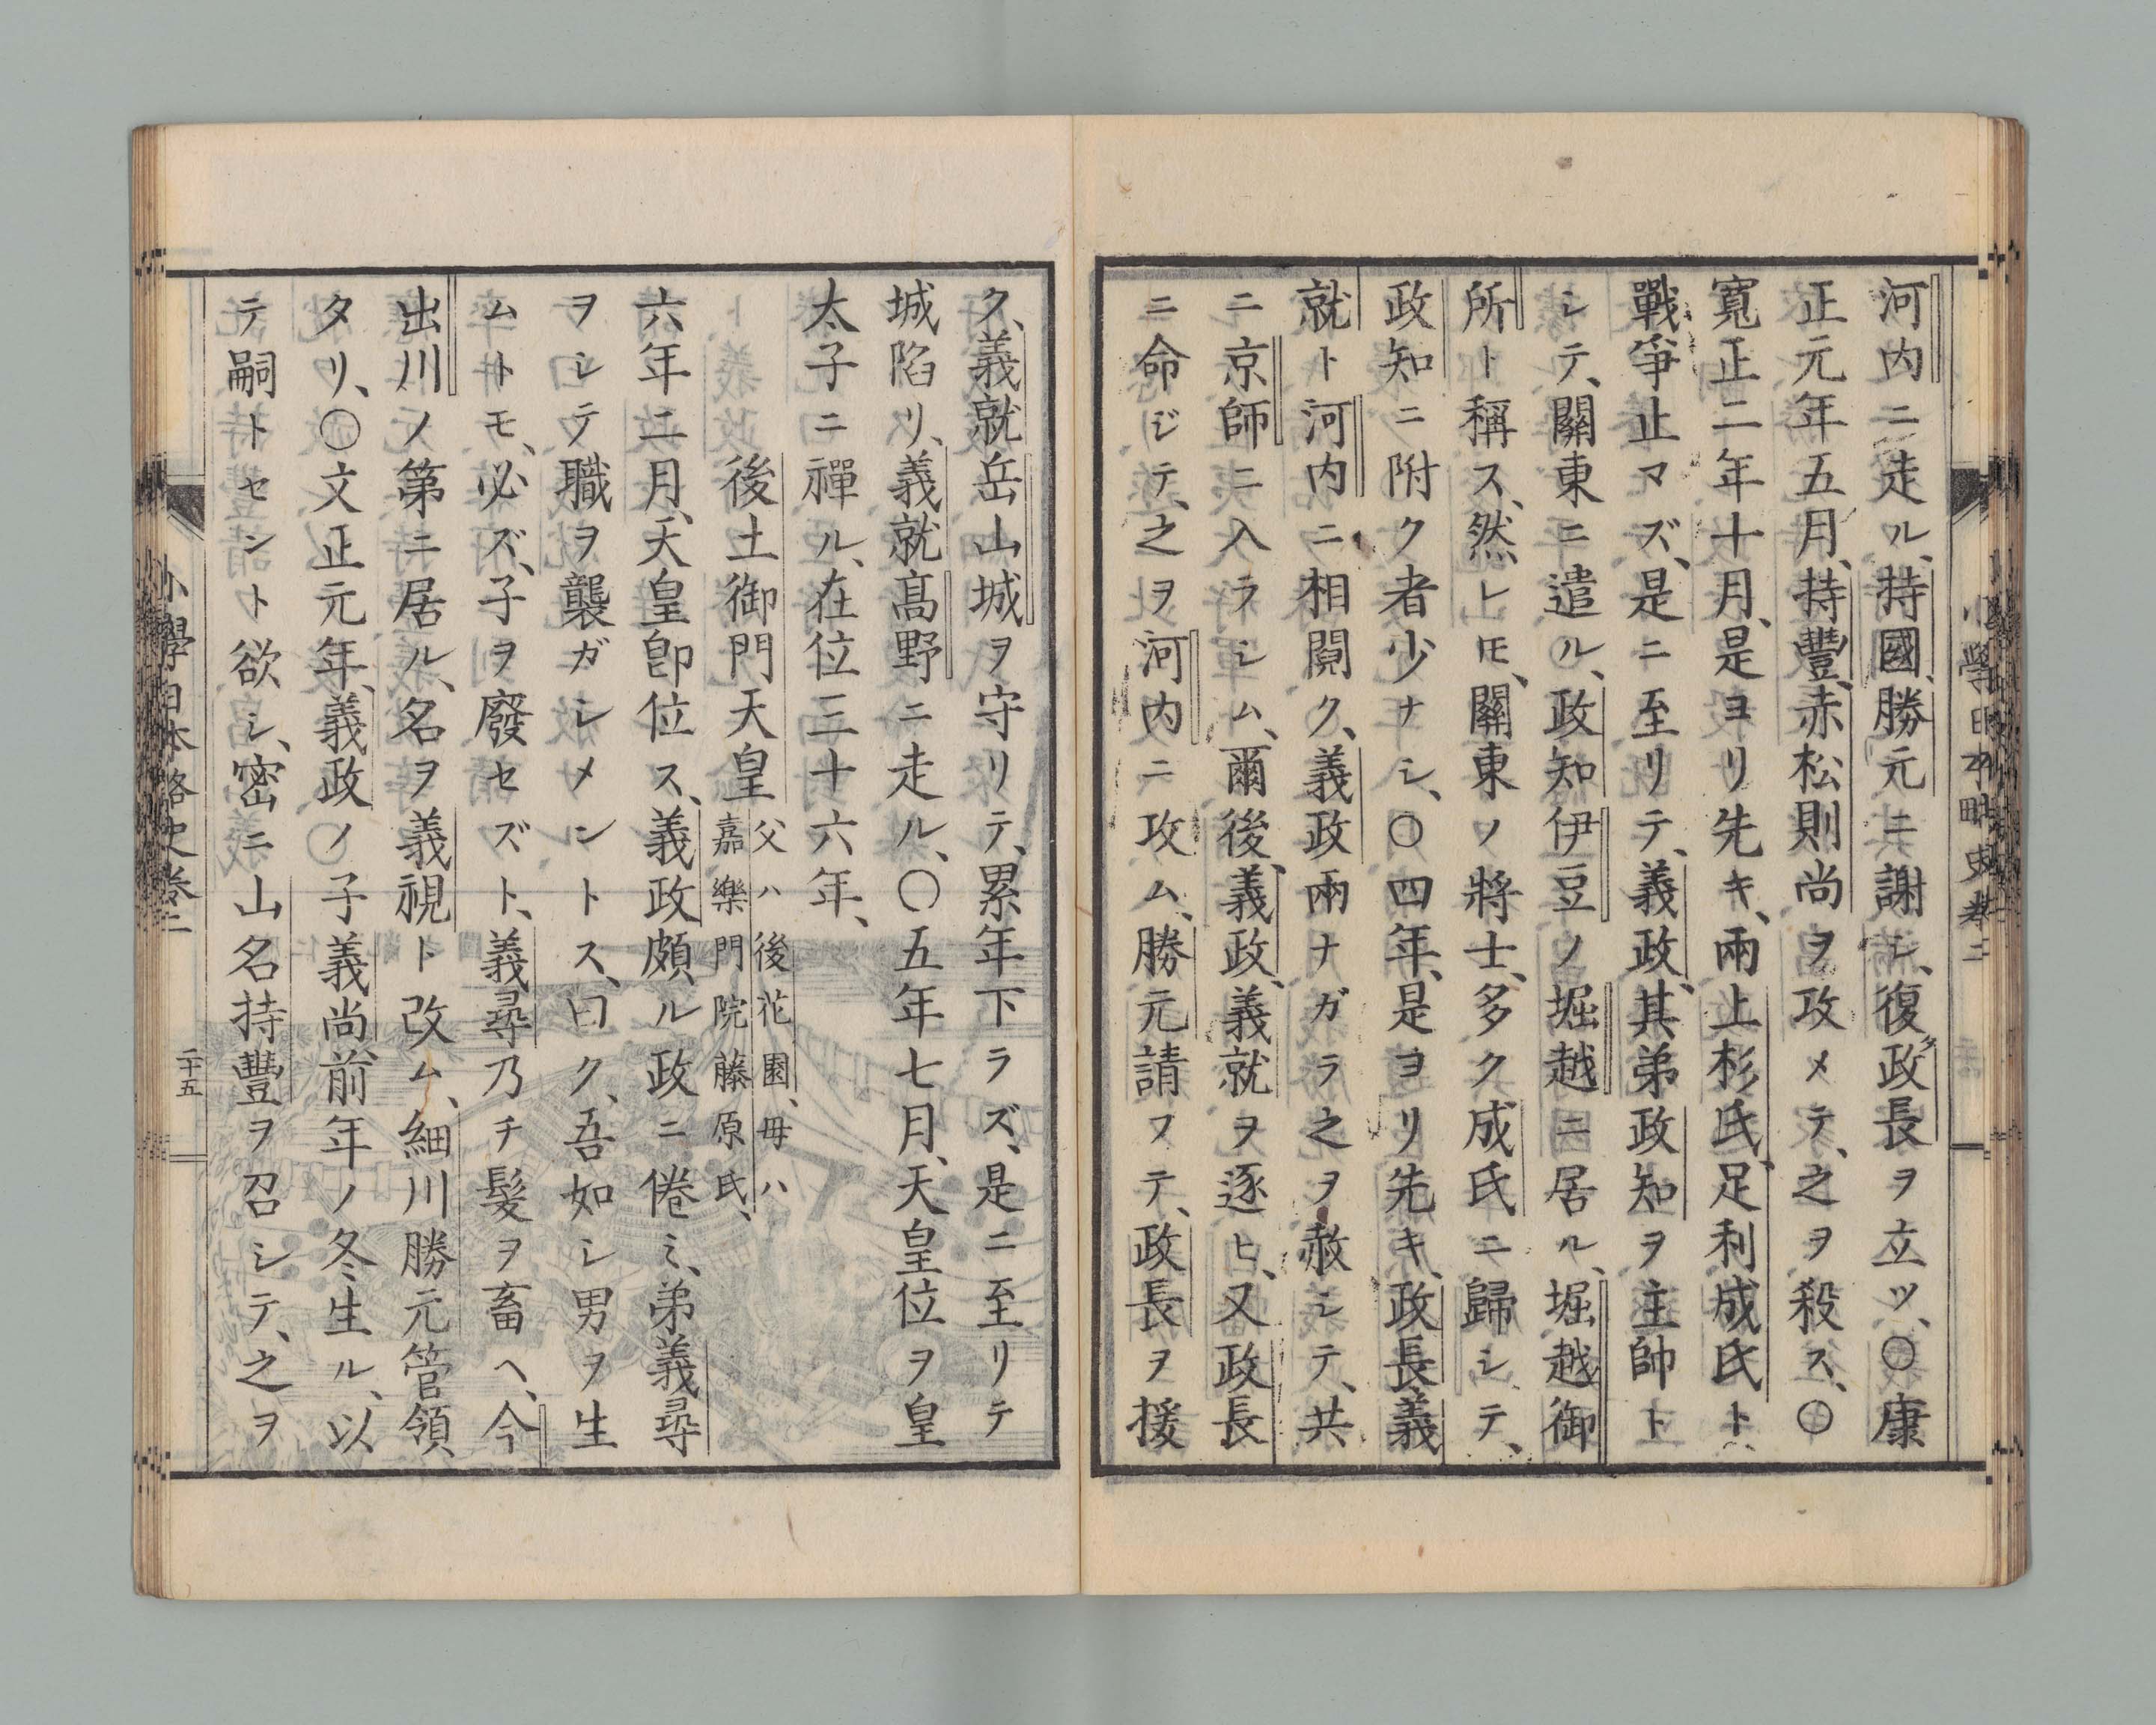 河内ニ走ル、持國、勝元ニ謝シ、復タ政長ヲ立ツ、〇康
正元年五月、持豐、赤松則尚ヲ攻メテ、之ヲ殺ス、〇
寬正二年十月、是ヨリ先キ、兩上杉氏、足利成氏ト、
戰爭止マズ、是ニ至リテ、義政、其弟政知ヲ主帥ト
シテ、關東ニ遣ル、政知伊豆ノ堀越ニ居ル、堀越御
所ト稱ス、然レ𪜈、關東ノ將士、多ク成氏ニ歸シテ、
政知ニ附ク者少ナシ、〇四年、是ヨリ先キ、政長、義
就ト河内ニ相鬩ク、義政兩ナガラ之ヲ赦シテ、共
ニ京師ニ入ラシム、爾後、義政、義就ヲ逐ヒ、又政長
ニ命ジテ、之ヲ河内ニ攻ム、勝元請フテ、政長ヲ援
ク、義就岳山城ヲ守リテ、累年下ラズ、是ニ至リテ
城陷リ、義就髙野ニ走ル、〇五年七月、天皇位ヲ皇
太子ニ禪ル、在位三十六年、
後土御門天皇 父ハ後花園、母ハ
嘉樂門院藤原氏、
六年二月、天皇卽位ス、義政頗ル政ニ倦ミ、弟義尋
ヲシテ職ヲ襲ガシメントス、曰ク、吾如シ男ヲ生
ムトモ、必ズ、子ヲ廢セズト、義尋乃チ髮ヲ畜ヘ、今
出川ノ第ニ居ル、名ヲ義視ト改ム、細川勝元管領
タリ、〇文正元年、義政ノ子義尚、前年ノ冬生ル、以
テ嗣トセント欲シ、密ニ山名持豐ヲ召シテ、之ヲ
小學日本略史卷二
二十五